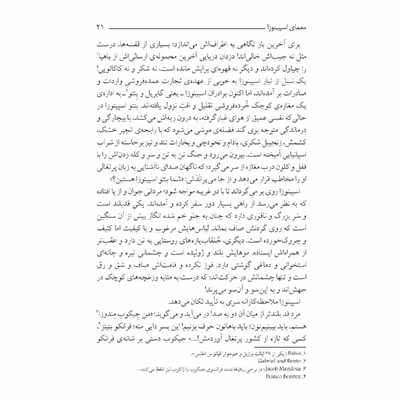 معمای اسپینوزا ۲۱
برای آخرین بار نگاهی به اطرافش می‌اندازد؛ بسیاری از قفسه‌ها، درست
مثل ته جیبش خالی‌اند! دزدان دریایی آخرین محموله‌ی ارسالی‌اش از باهیا¹
را چپاول کرده‌اند و دیگر نه قهوه‌ای برایش مانده است، نه شکر و نه کاکائویی!
خانواده‌ی اسپینوزا به خوبی از عهده‌ی تجارت عمده‌فروشی واردات و
صادرات بر آمده‌اند، اما اکنون برادران اسپینوزا ـ یعنی گابریل و بنتو² ـ به اداره‌ی
یک مغازه‌ی کوچک خرده‌فروشی تقلیل و افت نزول یافته‌اند. بنتو اسپینوزا در
حالی که نفسی عمیق از هوای غبار گرفته، به درون ریه‌اش می‌کشد، با بیچارگی و
درماندگی متوجه بوی گند فضله‌ی موشی می‌شود که با رایحه‌ی انجیر خشک،
کشمش، زنجبیل شکری، بادام و نخودچی و بخارات تند و تیز برخاسته از شراب
اسپانیایی آمیخته است. بیرون می‌رود و جنگ تن به تن و سر و کله زدن‌اش را با
قفل و کلون درب مغازه از سر می‌گیرد که ناگهان صدای ناآشنایی به زبان پرتغالی
او را مخاطب قرار می‌دهد و از جا می‌پراندش: «شما بنتو اسپینوزا هستین؟»
اسپینوزا روی بر می‌گرداند تا با دو غریبه مواجه شود؛ مردانی جوان و از پا افتاده
که به نظر می‌رسد از راهی بسیار دور سفر کرده و آمده‌اند. یکی قدبلند است
و سَر بزرگ و ناقوری دارد که چنان به جلو خم شده انگار بیش از آن سنگین
است که روی گردنش صاف بماند. لباس‌هایش مرغوب و با کیفیت اما کثیف
و چروک‌خورده است. دیگری، ژنده‌پاره‌های روستایی به تن دارد و عقب‌تر
از همراه‌اش ایستاده. موهایش بلند و ژولیده است و چشمانی تیره و چانه‌ای
استخوانی و دماغی گوشتی دارد. قوز نکرده و قامت‌اش صاف و شق و رق
است و تنها چشمانش در حرکت‌اند؛ که درست به مثابه وزغچه‌های کوچک در
جهش‌اند و به این‌سو و آن‌سو می‌پرند!
اسپینوزا ملاحظه‌کارانه سری به تأیید تکان می‌دهد.
مرد قد بلندتر از میان آن دو به صدا در می‌آید و می‌گوید: «من جیکوب مندوزا³
هستم. باید ببینیم‌تون؛ باید باهاتون حرف بزنیم! این پسر دایی منه؛ فرانکو بنیتز⁴،
کسی که تازه از کشور پرتغال آوردمش!...» جیکوب دستی بر شانه‌ی فرانکو
۱. Bahia:
۲. Gabriel and Bento
۳. Jacob Mendoza:
۴. Franco Benitez